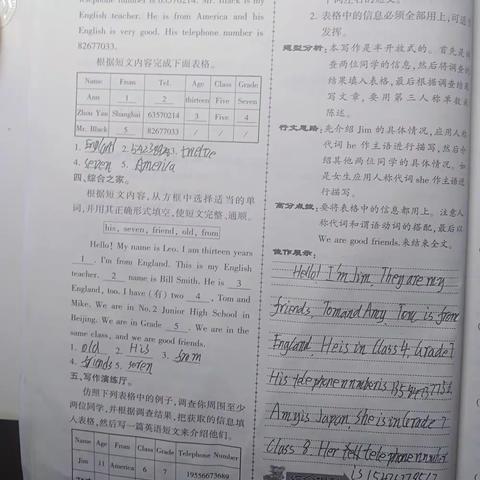 English teacher. He is from America and his
English is very good. His telephone number is
82677033.
根据短文内容完成下面表格。
Name From Tel. Age Class Grade
Ann 1 2 thirteen Five Seven
Zhou Yan Shanghai 63570214 3 Five 4
Mr. Black 5 82677033 / / /
1. England 2. 3. twelve
4. seven 5. America
四、综合之家。
根据短文内容,从方框中选择适当的单
词,并用其正确形式填空,使短文完整、通顺。
his, seven, friend, old, from
Hello! My name is Leo. I am thirteen years
1 . I'm from England. This is my English
teacher. 2 name is Bill Smith. He is 3
England, too. I have (有) two 4 , Tom and
Mike. We are in No. 2 Junior High School in
Beijing. We are in Grade 5 . We are in the
same class, and we are good friends.
1. old 2. His 3. from
4. friends 5. seven
五、写作演练厅。
仿照下列表格中的例子,调查你周围至少
两位同学,并根据调查结果,把获取的信息填
入表格,然后写一篇英语短文来介绍他们。
Name Age From Class Grade Telephone Number
Jim 11 America 6 7 19556673689
2. 表格中的信息必须全部用上,可适
发挥。
题型分析:本写作是半开放式的。首先是
查两位同学的信息,然后将调查的
结果填入表格,最后根据调查结果
写文章,要用第三人称单数来
陈述。
行文思路:先介绍 Jim 的具体情况,应用人称
代词 he 作主语进行描写,然后介
绍其他两位同学的具体情况。如
是女生应用人称代词 she 作主语进
行描写。
高分点拨:要将表格中的信息都用上。注意人
称代词和谓语动词的搭配,最后以
We are good friends. 来结束全文。
佳作展示:
Hello! I'm Jim. They are my
friends, Tom and Amy. Tom is from
England. He is in Class 4, Grade 7
His telephone number is
Amy is Japan. She is in Grade 7
Class 8. Her tell telephone number